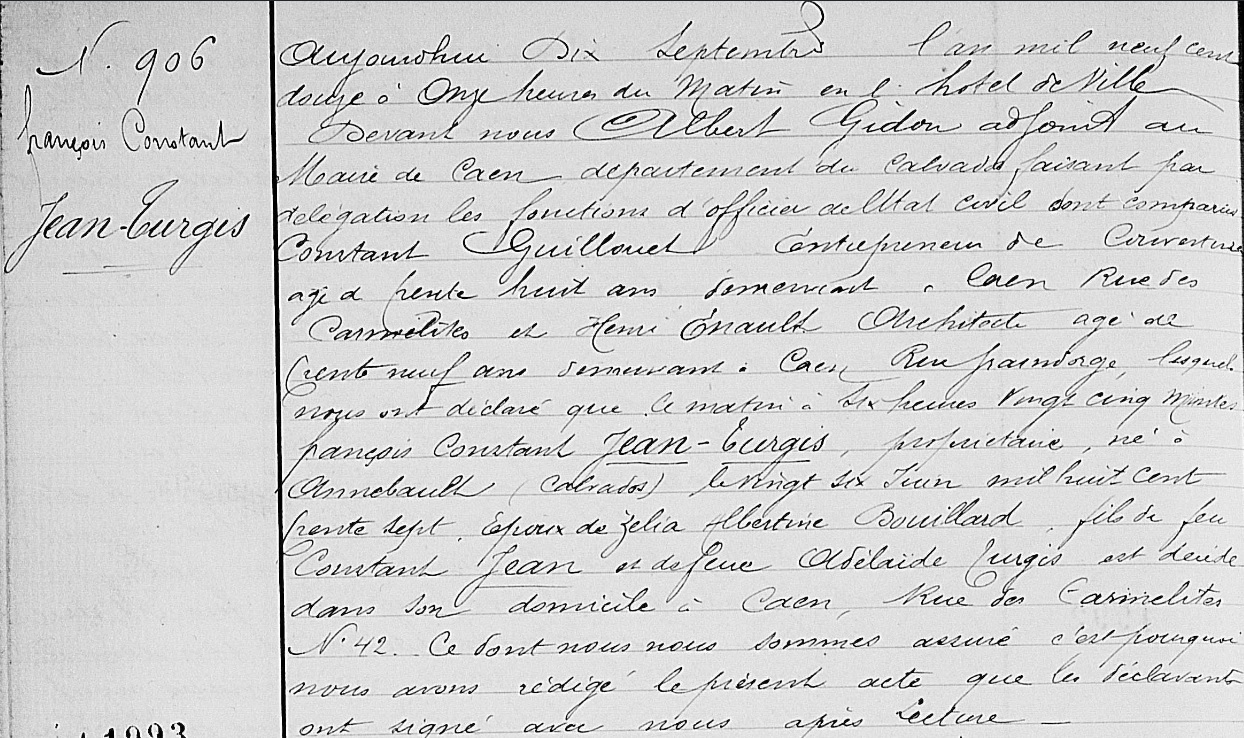 N. 906
françois Constant
Jean-Turgis
Aujourdhui Dix Septembre l'an mil neuf cent
douze à Onze heures du Matin en l. hotel de Ville
Devant nous Albert Gidon adjoint au
Maire de Caen departement du Calvados faisant par
delégation les fonctions d'officier de l'Etat civil sont comparus
Constant Guillouet Entrepreneur de Couverture
agé d trente huit ans demeurant à Caen Rue des
Carmelites et Henri Enault Architecte agé de
trente neuf ans demeurant à Caen Rue, lesquels
nous ont déclaré que ce matin à Six heures Vingt cinq Minutes
françois Constant Jean-Turgis, propriétaire, né à
Annebault (Calvados) le vingt six Juin mil huit cent
trente sept. Epoux de Zelia Albertine Bouillard, fils de feu
Constant Jean et de feue Adélaïde Turgis est décédé
dans son domicile à Caen, Rue des Carmelites
N. 42. Ce dont nous nous sommes assuré c'est pourquoi
nous avons rédigé le présent acte que les déclarants
ont signé avec nous après Lecture —
1993